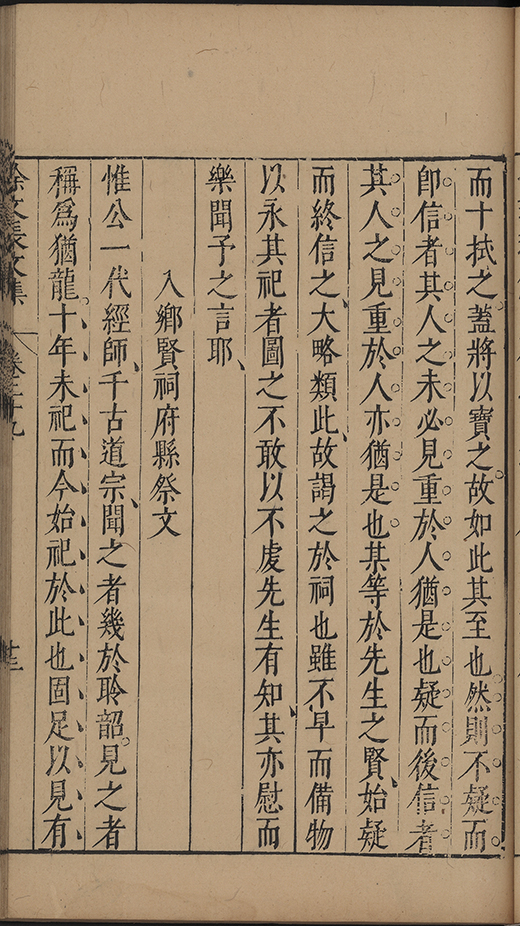 而十拭之蓋將以寶之故如此其至也然則不疑而
卽信者其人之未必見重於人猶是也疑而後信者
其人之見重於人亦猶是也某等於先生之賢始疑
而終信之大略類此故謁之於祠也雖不早而備物
以永其祀者圖之不敢以不虔先生有知其亦慰而
樂聞予之言耶
入鄉賢祠府縣祭文
惟公一代經師千古道宗聞之者幾於聆韶見之者
稱爲猶龍十年未祀而今始祀於此也固足以見有
徐文長文集 卷二十九 十三